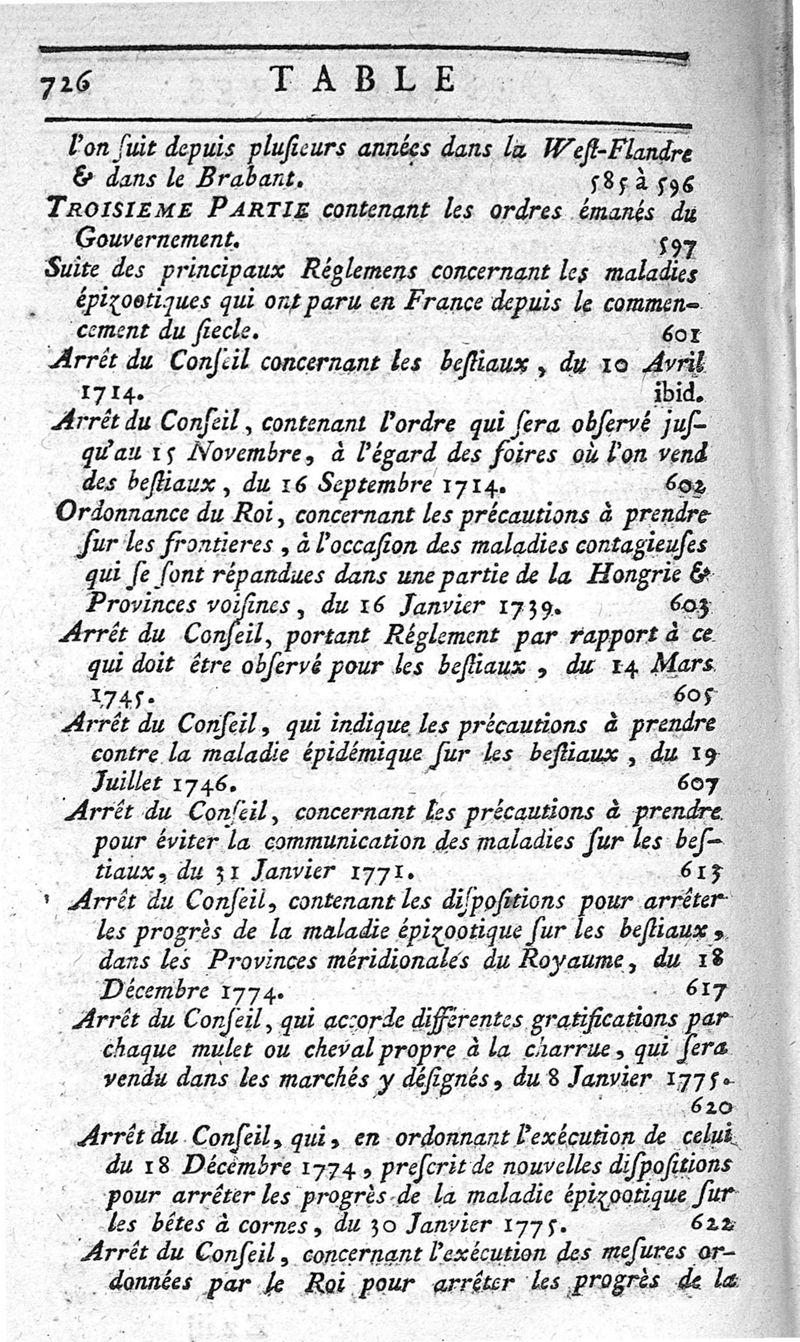 726 TABLE
l'on ſuit depuis pluſieurs années dans la Weſt-Flandre
& dans le Brabant. 585 à 596
TROISIEME PARTIE contenant les ordres émanés du
Gouvernement. 597
Suite des principaux Réglemens concernant les maladies
épizootiques qui ont paru en France depuis le commen-
cement du ſiecle. 601
Arrêt du Conſeil concernant les beſtiaux, du 10 Avril
1714. ibid.
Arrêt du Conſeil, contenant l'ordre qui ſera obſervé juſ-
qu'au 15 Novembre, à l'égard des foires où l'on vend
des beſtiaux, du 16 Septembre 1714. 602
Ordonnance du Roi, concernant les précautions à prendre
ſur les frontieres, à l'occaſion des maladies contagieuſes
qui ſe ſont répandues dans une partie de la Hongrie &
Provinces voiſines, du 16 Janvier 1739. 603
Arrêt du Conſeil, portant Réglement par rapport à ce
qui doit être obſervé pour les beſtiaux, du 14 Mars
1745. 605
Arrêt du Conſeil, qui indique les précautions à prendre
contre la maladie épidémique ſur les beſtiaux, du 19
Juillet 1746. 607
Arrêt du Conſeil, concernant les précautions à prendre
pour éviter la communication des maladies ſur les beſ-
tiaux, du 31 Janvier 1771. 613
Arrêt du Conſeil, contenant les diſpoſitions pour arrêter
les progrès de la maladie épizootique ſur les beſtiaux,
dans les Provinces méridionales du Royaume, du 18
Décembre 1774. 617
Arrêt du Conſeil, qui accorde différentes gratifications par
chaque mulet ou cheval propre à la charrue, qui ſera
vendu dans les marchés y déſignés, du 8 Janvier 1775.
620
Arrêt du Conſeil, qui, en ordonnant l'exécution de celui
du 18 Décembre 1774, preſcrit de nouvelles diſpoſitions
pour arrêter les progrès de la maladie épizootique ſur
les bêtes à cornes, du 30 Janvier 1775. 622
Arrêt du Conſeil, concernant l'exécution des meſures or-
données par le Roi pour arrêter les progrès de la